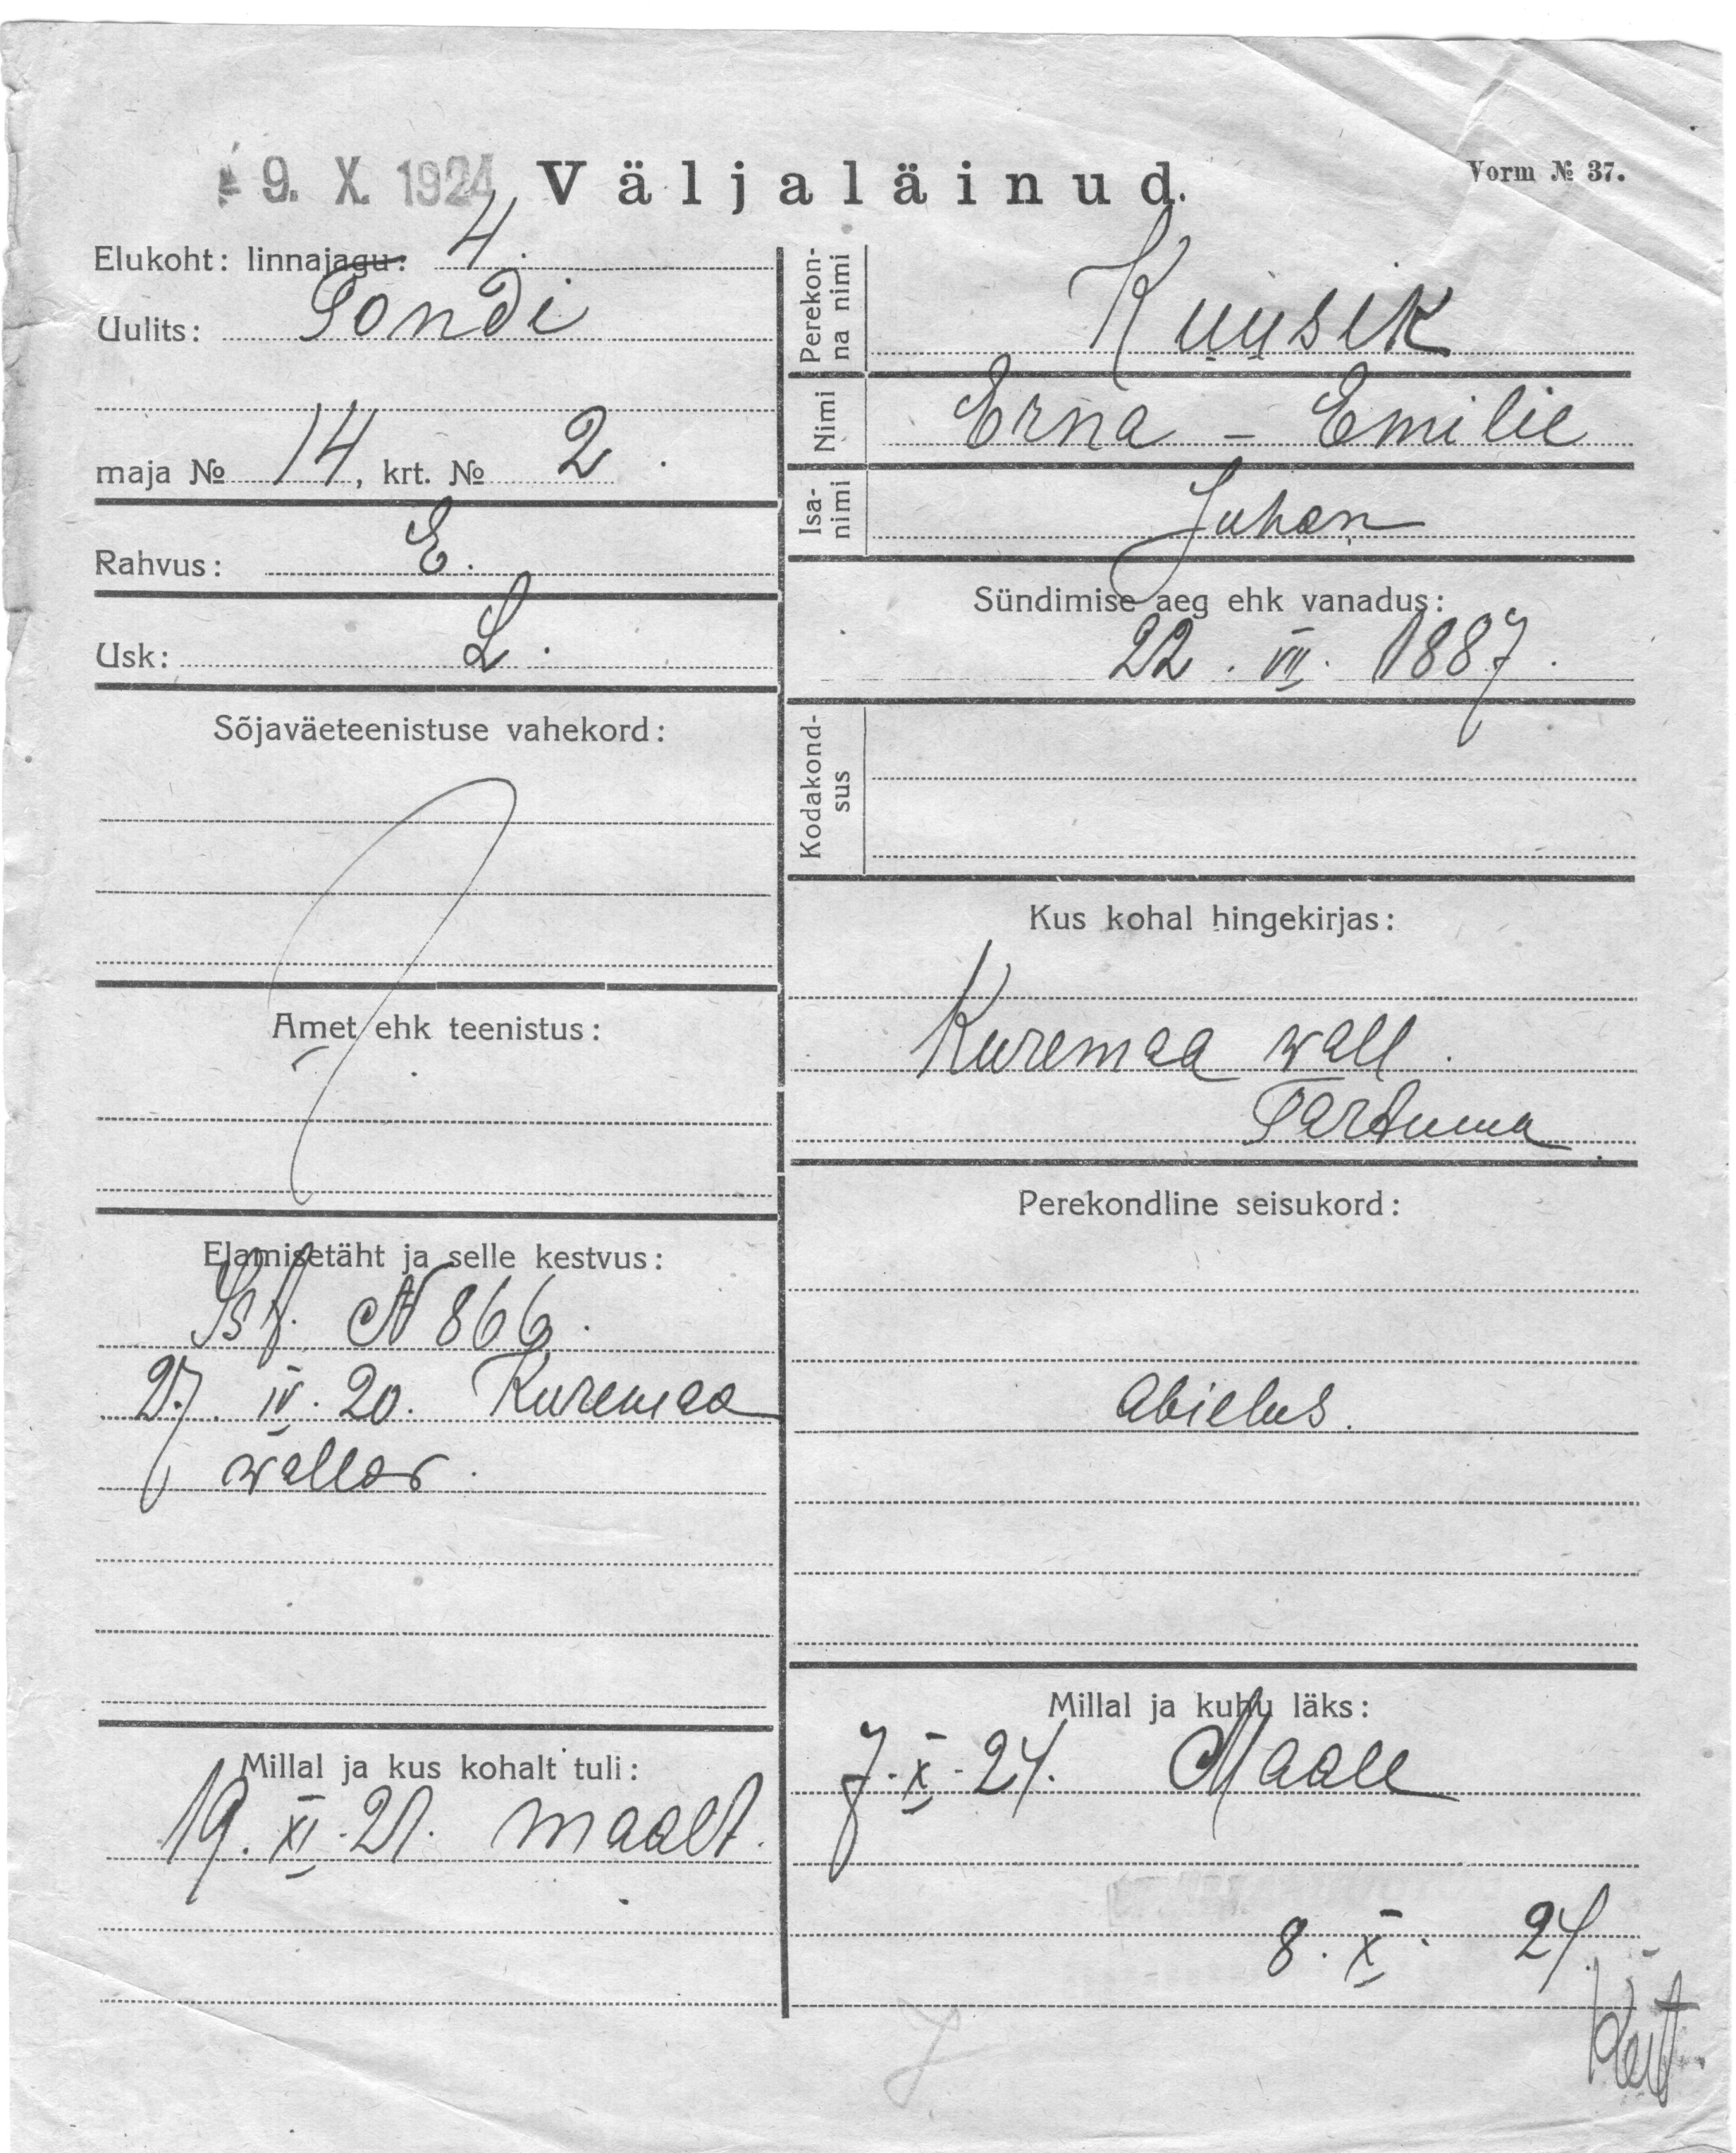 9. X. 1924 Väljaläinud.
Vorm № 37.
Elukoht: linnajagu: 4.
Uulits: Tondi
maja № 14, krt. № 2.
Rahvus: E.
Usk: L.
Sõjaväeteenistuse vahekord:
Amet ehk teenistus:
Elamisetäht ja selle kestvus:
Ist. N 866.
27. IV. 20. Kuremaa
wallas.
Millal ja kus kohalt tuli:
19. XI. 21. maalt.
Perekon-
na nimi
Kuusik
Nimi Erna - Emilie
Isa-
nimi
Juhan
Sündimise aeg ehk vanadus:
22. VII. 1887.
Kodakond-
sus
Kus kohal hingekirjas:
Kuremaa wall.
Tartuma
Perekondline seisukord:
abielus.
Millal ja kuhu läks:
7. X. 24. Maale
8. X. 24.